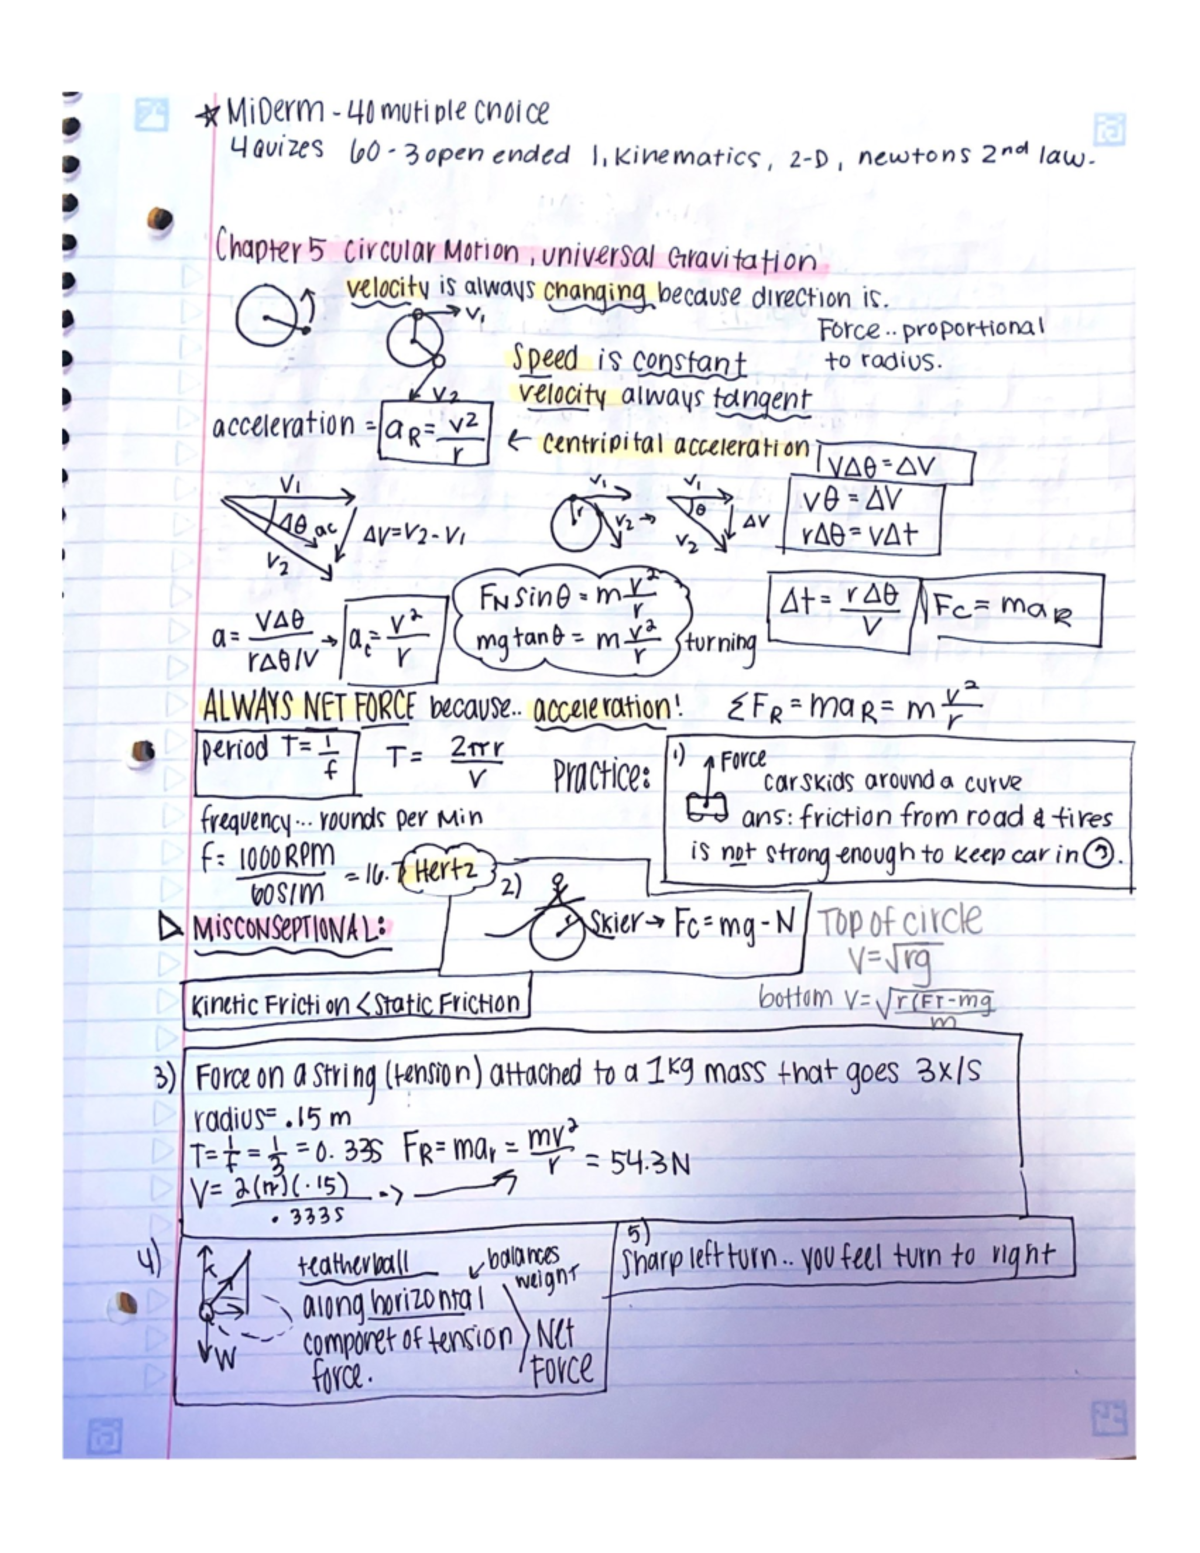 ☆ MiDerm - 40 mutiple choice
4 quizes 60 - 3 open ended 1, Kinematics, 2-D, newtons 2nd law.
Chapter 5 Circular Motion, universal Gravitation
velocity is always changing because direction is.
V₁
Force.. proportional
to radius.
Speed is constant
V₂
velocity always tangent
acceleration = aR = v²/r ← centripital acceleration
VΔθ = ΔV
V₁
Δθ ac
V₂
ΔV = V₂ - V₁
V₁
r
V₂ →
V₁
θ
ΔV
V₂
vθ = ΔV
rΔθ = vΔt
FN sinθ = m v²/r
mg tanθ = m v²/r turning
a = VΔθ / rΔθ/V → ac = v²/r
Δt = rΔθ/V
Fc = maR
ALWAYS NET FORCE because.. acceleration! ΣFR = maR = m v²/r
period T = 1/f T = 2πr/V
Practice:
1) Force
car skids around a curve
ans: friction from road & tires
is not strong enough to keep car in
frequency... rounds per Min
f = 1000 RPM / 60 S/M = 16.7 Hertz
2) Skier → Fc = mg - N
Top of circle
V = √rg
bottom V = √r(FT - mg / m
MISCONSEPTIONAL:
Kinetic Friction < Static Friction
3) Force on a string (tension) attached to a 1 kg mass that goes 3x/s
radius = .15 m
T = 1/f = 1/3 = 0.33S FR = mar = mv²/r = 54.3 N
V = 2(π)(.15) / .333S ->
4) W
teatherball
along horizontal
componet of tension
force.
balances
weight
Net
Force
5)
Sharp left turn.. you feel turn to right